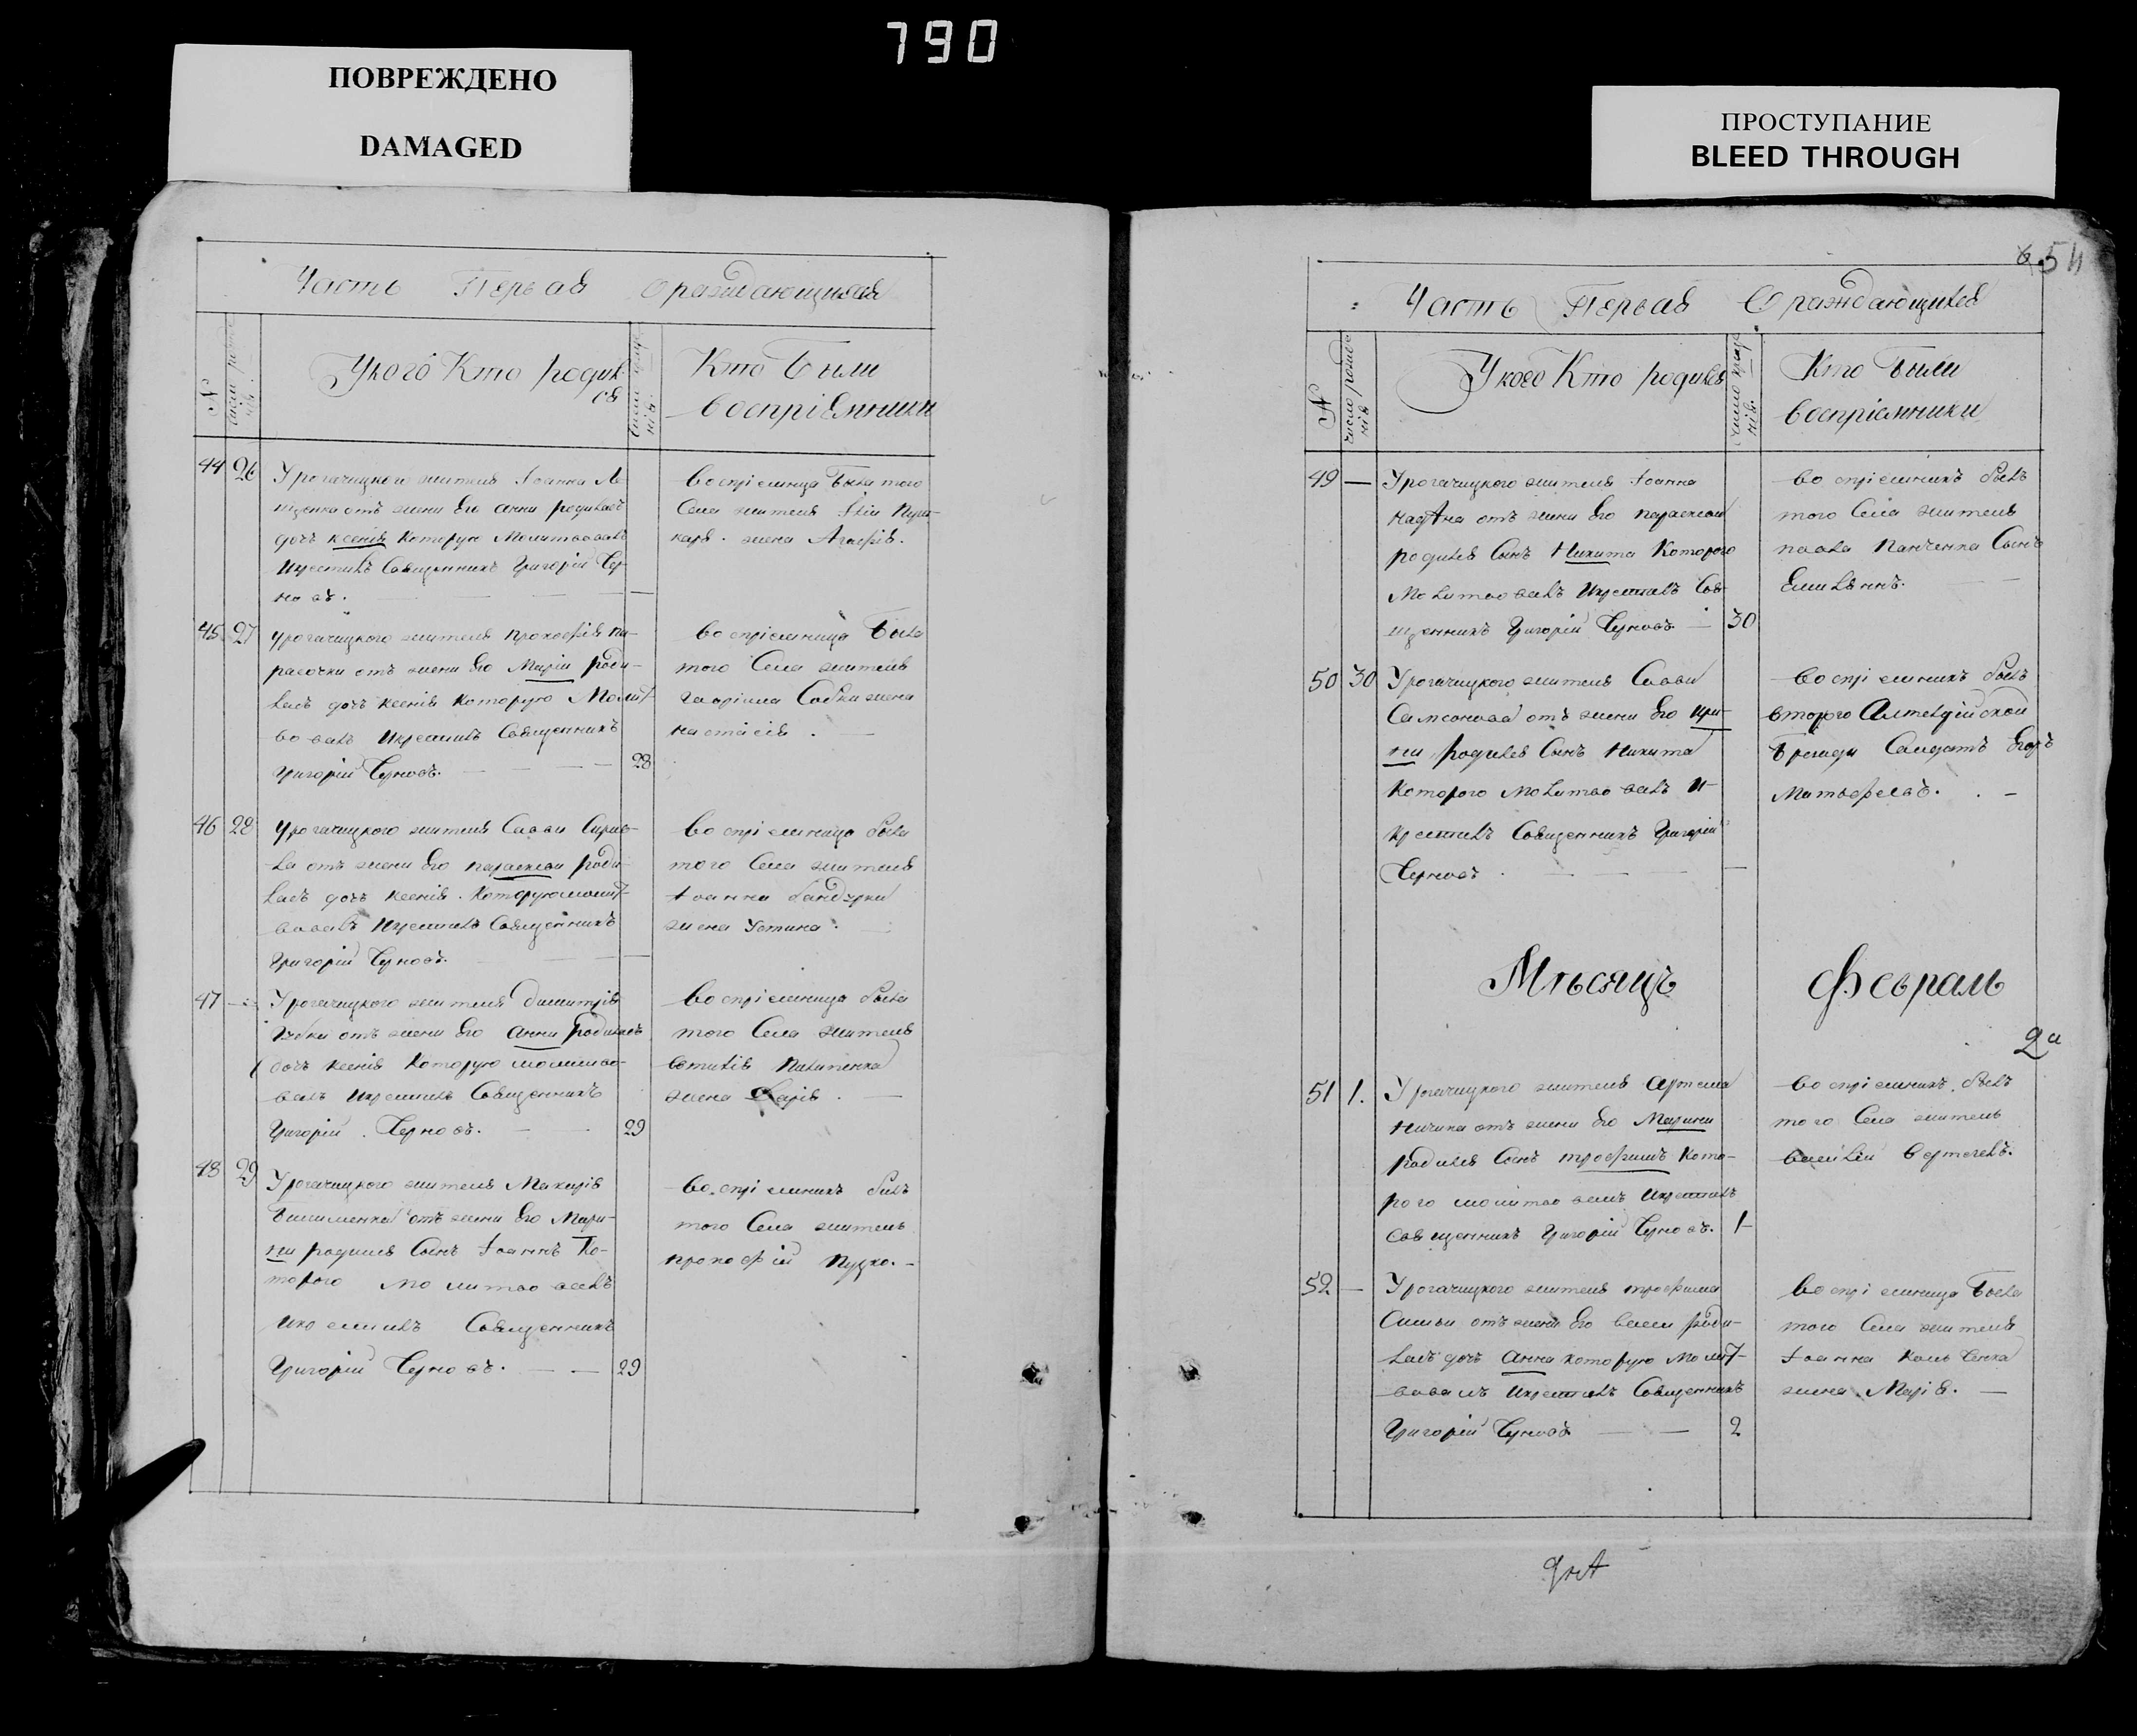 790
ПОВРЕЖДЕНО
DAMAGED
ПРОСТУПАНИЕ
BLEED THROUGH
Часть Первая ораждающихся
N
Укого Кто родил
ся
Кто были
восприемники
44 26 Урогачицкого жителя Іоанна
отъ жени Его анни родилась
дочь ксенія которую Молитвовалъ
Икрестилъ Священникъ Григорій Чер-
новъ. —
восприемница была того
Села жителя
жена Агафія.
45 27 урогачицкого жителя прокофія па-
расочки отъ жени Его Маріи роди-
лась дочь ксенія которую Молит
вовалъ Икрестилъ Священникъ
Григорій Черновъ. 28
восприемница была
того Села жителя
гавріила жена
настасія.
46 28 урогачицкого жителя Савви
отъ жени Его параскеви роди-
лась дочь ксенія. которуюмолит
вовалъ Икрестилъ Священникъ
Григорій Черновъ. —
восприемница была
того Села жителя
Іоанна бандурки
жена Устина.
47 — Урогачицкого жителя димитрія
отъ жени Его анни родилась
дочь ксенія которую молитво-
валъ Икрестилъ Священникъ
Григорій Черновъ. 29
восприемница была
того Села жителя
пилипенка
жена дарія.
48 29 Урогачицкого жителя Макарія
отъ жени Его Мари-
ни родился Сынъ Іоаннъ Ко-
торого молитвовалъ
Икрестилъ Священникъ
Григорій Черновъ. 29
восприемникъ былъ
того Села житель
прокофій
6 54
Часть Первая Ораждающихся
N число рожде
нія
Укого Кто родился
Кто были
восприемники
49 — Урогачицкого жителя Іоанна
отъ жени Его параскеви
родился Сынъ Никита Которого
Молитвовалъ Икрестилъ Свя-
щенникъ Григорій Черновъ. 30
восприемникъ былъ
того Села житель
павла панченка Сынъ
Емиліянъ.
50 30 Урогачицкого жителя Савви
Самсонова отъ жени Его Ири-
ни родился Сынъ Никита
Которого молитвовалъ И-
крестилъ Священникъ Григорій
Черновъ. —
восприемникъ былъ
второго
бригади Салдатъ
Матвеевъ.
Мѣсяцъ Февраль
51 1. Урогачицкого жителя Артема
отъ жени Его Марини
родился Сынъ трофимъ кото-
рого молитвовалъ Икрестилъ
Священникъ Григорій Черновъ. 1
восприемникъ былъ
того Села житель
василій
52 — Урогачицкого жителя трофима
отъ жени Его роди-
лась дочь Анна которую молит-
вовалъ Икрестилъ Священникъ
Григорій Черновъ 2
восприемница была
того Села жителя
Іоанна
жена Марія.